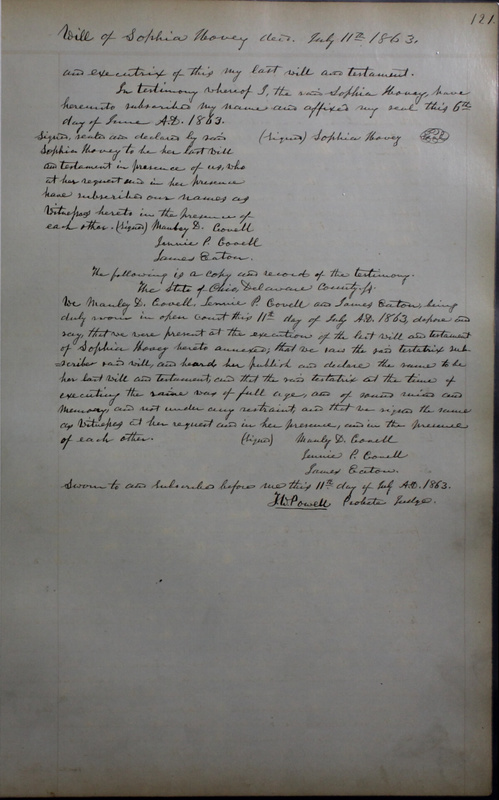 121
Will of Sophia Hovey decd. July 11th 1863.
and executrix of this my last will and testament.
In testimony whereof I, the said Sophia Hovey, have
hereunto subscribed my name and affixed my seal this 6th
day of June A.D. 1863.
Signed, sealed and declared by said (Signed) Sophia Hovey Seal
Sophia Hovey to be her last will
and testament in presence of us, who
at her request and in her presence
have subscribed our names as
Witnesses hereto in the presence of
each other. (Signed) Manley D. Covell
Jennie P. Covell
James Eaton.
The following is a copy and record of the testimony.
The State of Ohio Delaware County. ss.
We Manley D. Covell, Jennie P. Covell and James Eaton, being
duly sworn in open court this 11th day of July A.D. 1863, depose and
say, that we were present at the execution of the last will and testament
of Sophia Hovey hereto annexed; that we saw the said testatrix sub-
scribe said will, and heard her publish and declare the same to be
her last will and testament, and that the said testatrix at the time of
executing the same was of full age, and of sound mind and
memory, and not under any restraint, and that we signed the same
as Witnesses at her request and in her presence, and in the presence
of each other. (Signed) Manly D. Covell
Jennie P. Covell
James Eaton.
Sworn to and subscribed before me this 11th day of July A.D. 1863.
T.W. Powell Probate Judge.